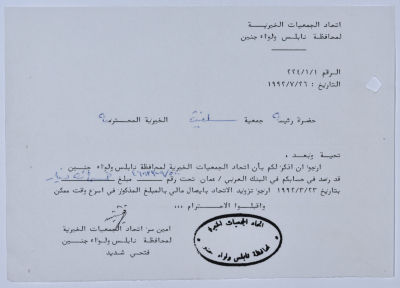 اتحاد الجمعيات الخيرية
لمحافظة نابلس ولواء جنين
الرقم ٢٢٤/١/١
التاريخ : ١٩٩٢/٧/٢٦
حضرة رئيسة جمعية سلفيت الخيرية المحترمة
تحية وبعد ،
ارجوا ان اذكركم بأن اتحاد الجمعيات الخيرية لمحافظة نابلس ولواء جنين
قد رصد في حسابكم في البنك العربي / عمان تحت رقم مبلغ
بتاريخ ١٩٩٢/٣/٢٣ ارجوا تزويد الاتحاد بايصال مالي بالمبلغ المذكور في اسرع وقت ممكن
واقبلوا الاحترام ،،،
امين سر اتحاد الجمعيات الخيرية
لمحافظة نابلس ولواء جنين
فتحي شديد
اتحاد الجمعيات الخيرية
لمحافظة نابلس ولواء جنين